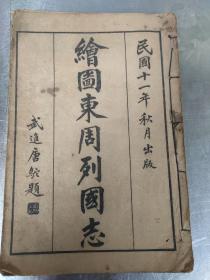 民國十一年秋月出版
繪圖東周列國志
武進唐駝題